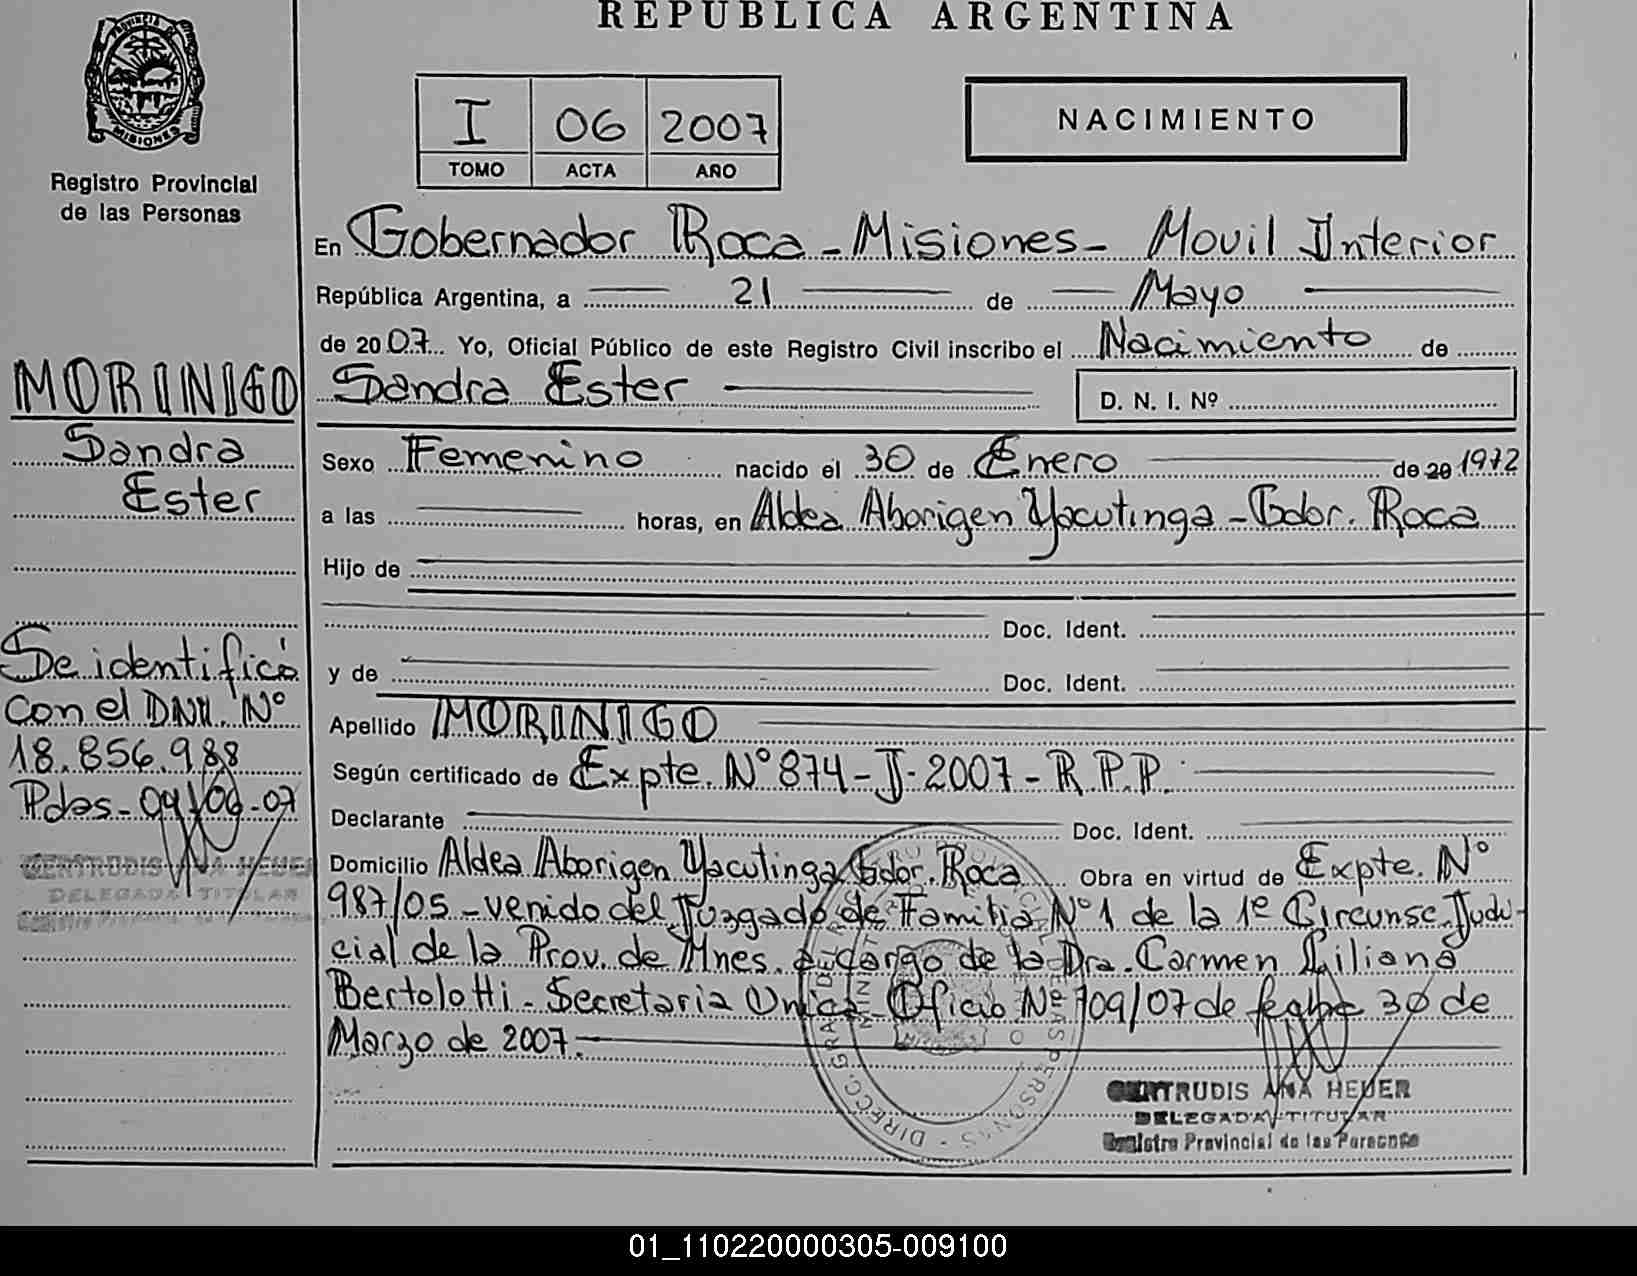 REPUBLICA ARGENTINA
PROVINCIA DE
MISIONES
Registro Provincial
de las Personas
I 06 2007
TOMO ACTA AÑO
NACIMIENTO
En Gobernador Roca - Misiones - Movil Interior
República Argentina, a 21 de Mayo
de 2007 Yo, Oficial Público de este Registro Civil inscribo el Nacimiento de
Sandra Ester
D. N. I. Nº
Sexo Femenino nacido el 30 de Enero de 20 1972
a las horas, en Aldea Aborigen Yacutinga - Gdor. Roca
Hijo de
Doc. Ident.
y de Doc. Ident.
Apellido MORINIGO
Según certificado de Expte. Nº 874-J-2007-R.P.P.
Declarante Doc. Ident.
Domicilio Aldea Aborigen Yacutinga Gdor. Roca Obra en virtud de Expte. Nº
987/05 - venido del Juzgado de Familia Nº 1 de la 1º Circunsc. Judi-
cial de la Prov. de Mnes. a cargo de la Dra. Carmen Liliana
Bertolotti - Secretaria Unica - Oficio Nº 109/07 de fecha 30 de
Marzo de 2007.
GERTRUDIS ANA HEUER
DELEGADA TITULAR
Registro Provincial de las Personas
MORINIGO
Sandra
Ester
Se identificó
con el DNI. Nº
18.856.988
Pdas - 04/06-07
GERTRUDIS ANA HEUER
DELEGADA TITULAR
01_110220000305-009100